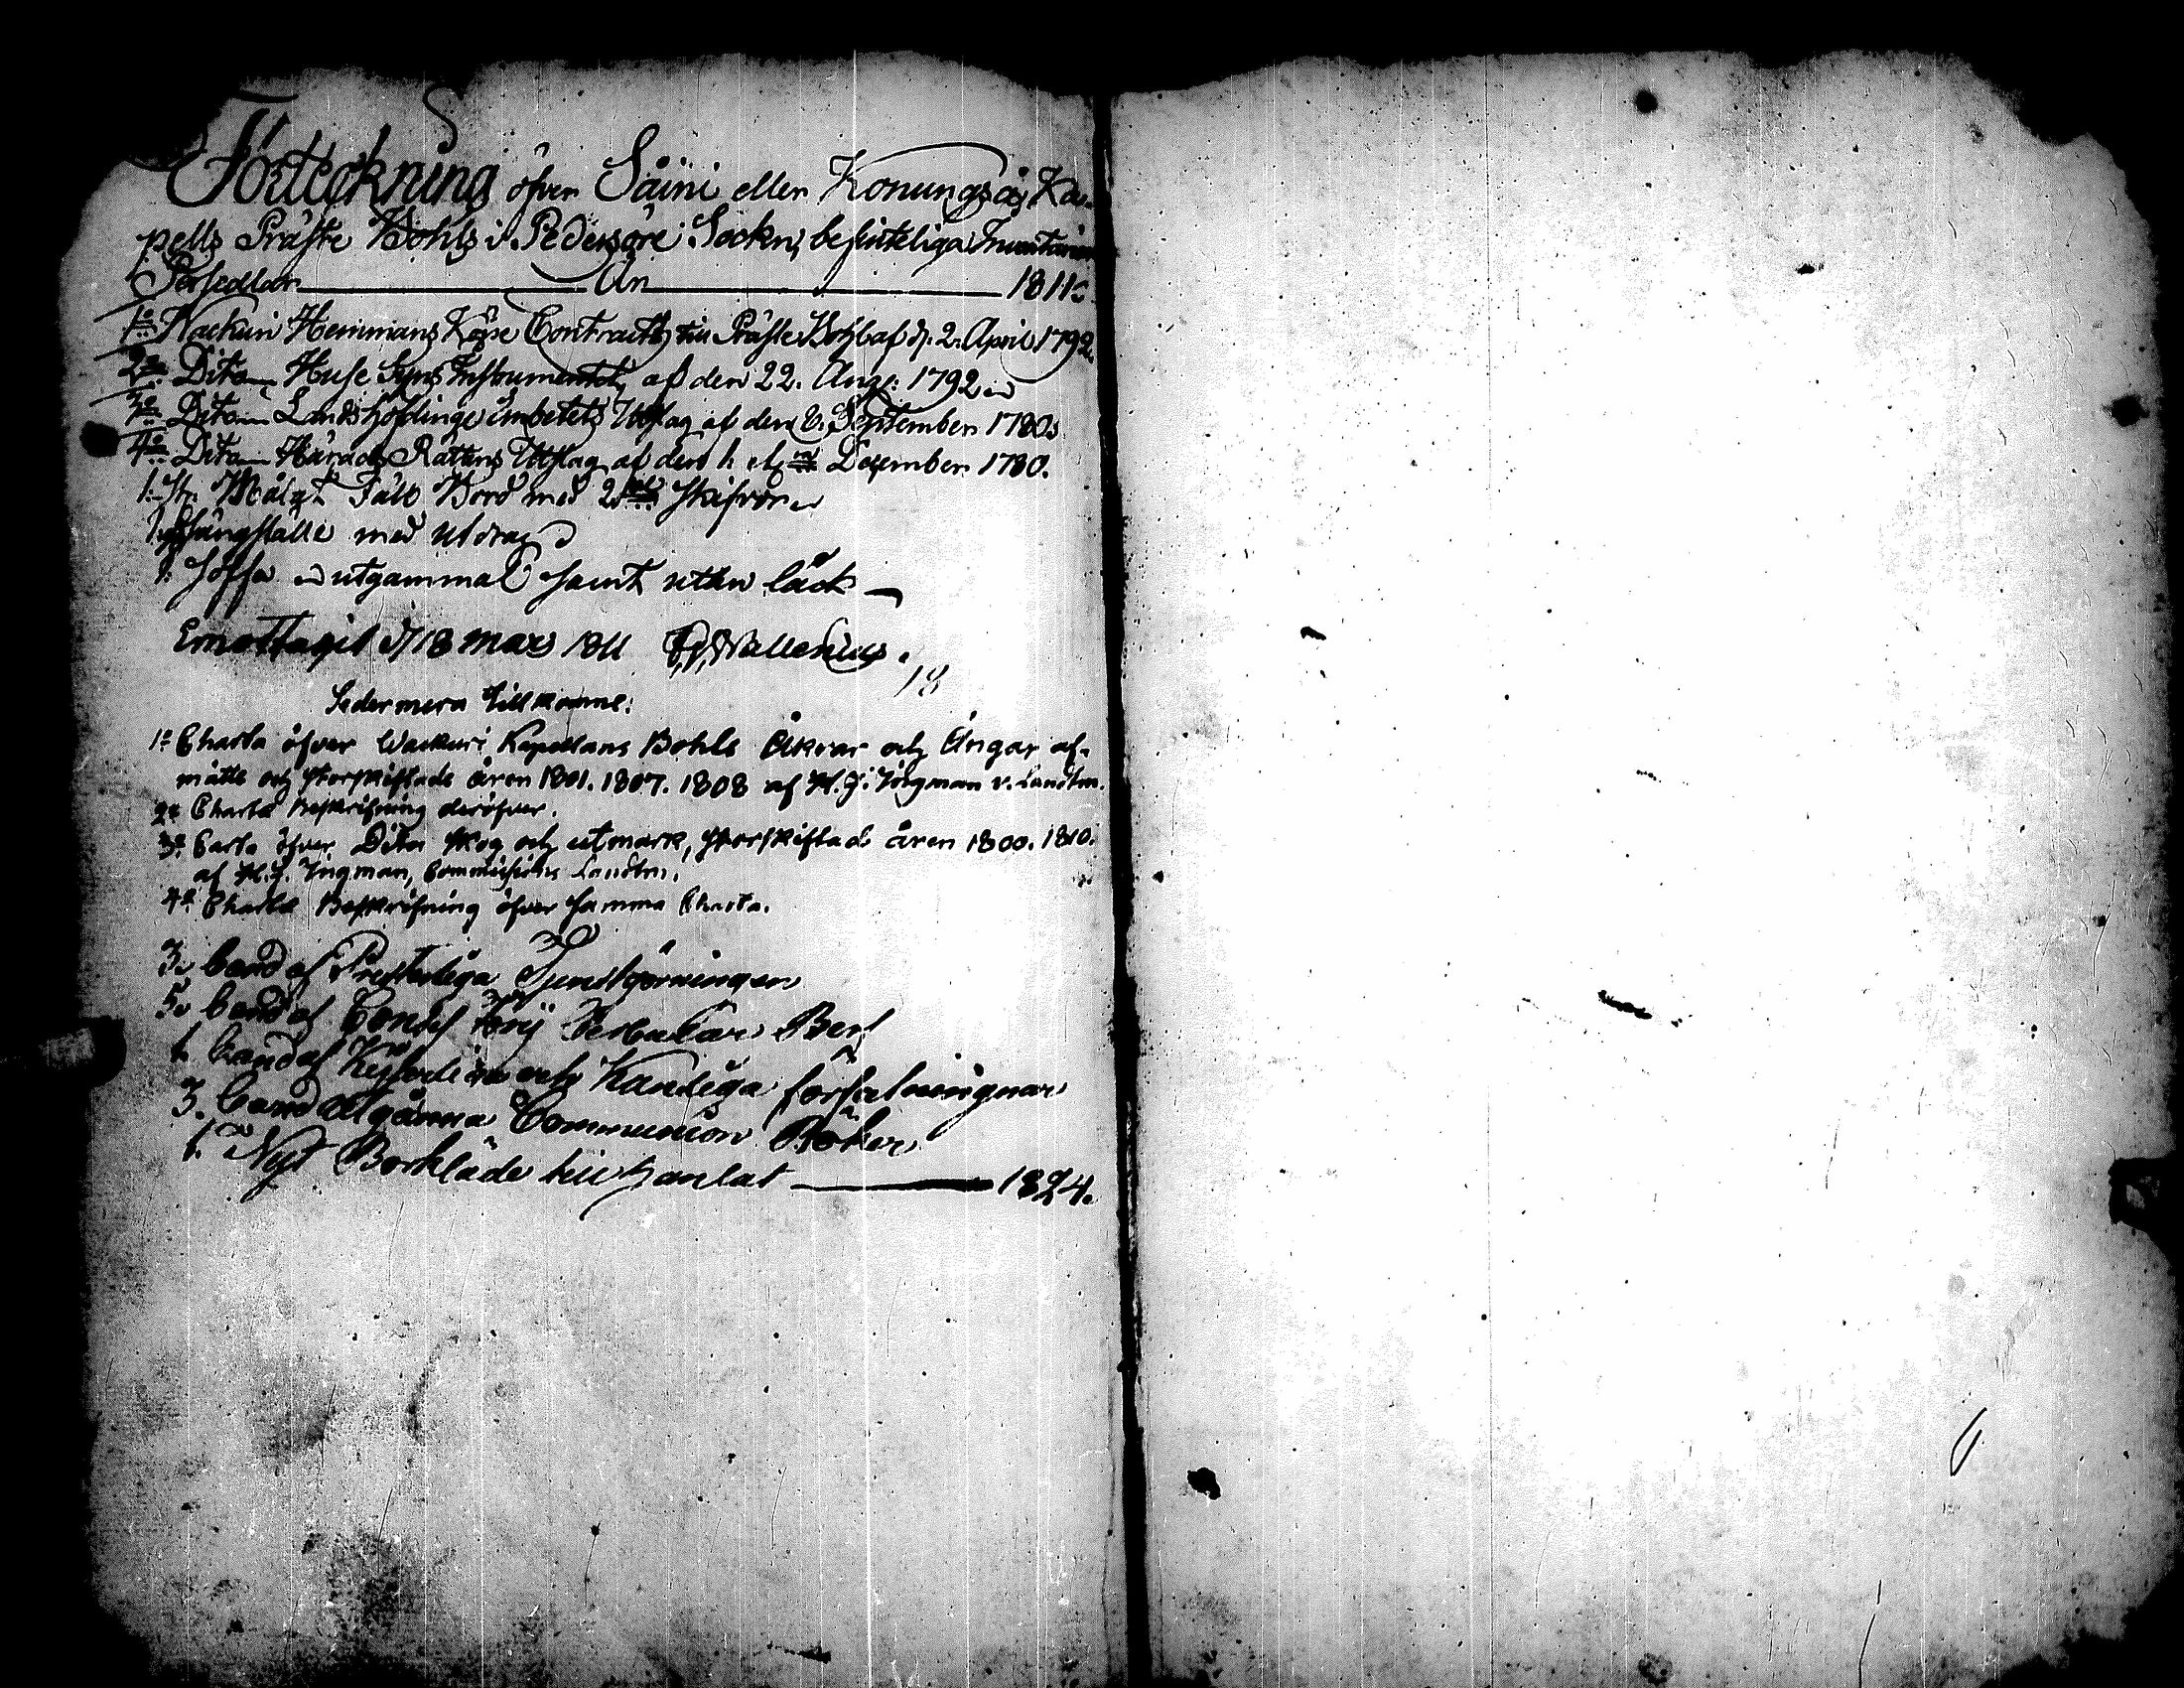 Förteckning öfver Säini eller Konungsåj Ka-
pells Präste Bohls i Pedersöre Sockn, befinteliga Inventarii
Persedlar An 1811.
1o Wackuri Hemmans Köpe Contract till Präste Bohl af d. 2. April 1792.
2o Dito Huse Syns Instrument af den 22. Aug. 1792
3o Dito Landshöfdinge Embetets Utslag af den 6. September 1780.
4o Dito Härads Rättens Utslag af den 1. December 1780.
1. St. Målat Fält Bord med 2 skifvor
1. Sängställe med utdrag
1. Soffa utgammal samt utan låck
Emottagit d 18 Mars 1811 Wallenius.
18
Sedermera tillkomne:
1o Charta öfver Wackuri Kapellans Bohls Åkrar och Ängar af-
mätte och storskiftade åren 1801. 1807. 1808 af H. J. Ingman v. Landtm.
2o Charta Beskrifning deröfver.
3o Carta öfver Dito skog och utmark, storskiftad åren 1800. 1810.
af H. J. Ingman, Commissions Landtm.
4o Charta Beskrifning öfver samma Charta.
3. band af Presterliga Tjenstgörningen
5. band af Cirkulär Bref
1. band af och Kandliga författningnar
3. band utgamla Communion Böker
1. Nytt Borkläde 1824.